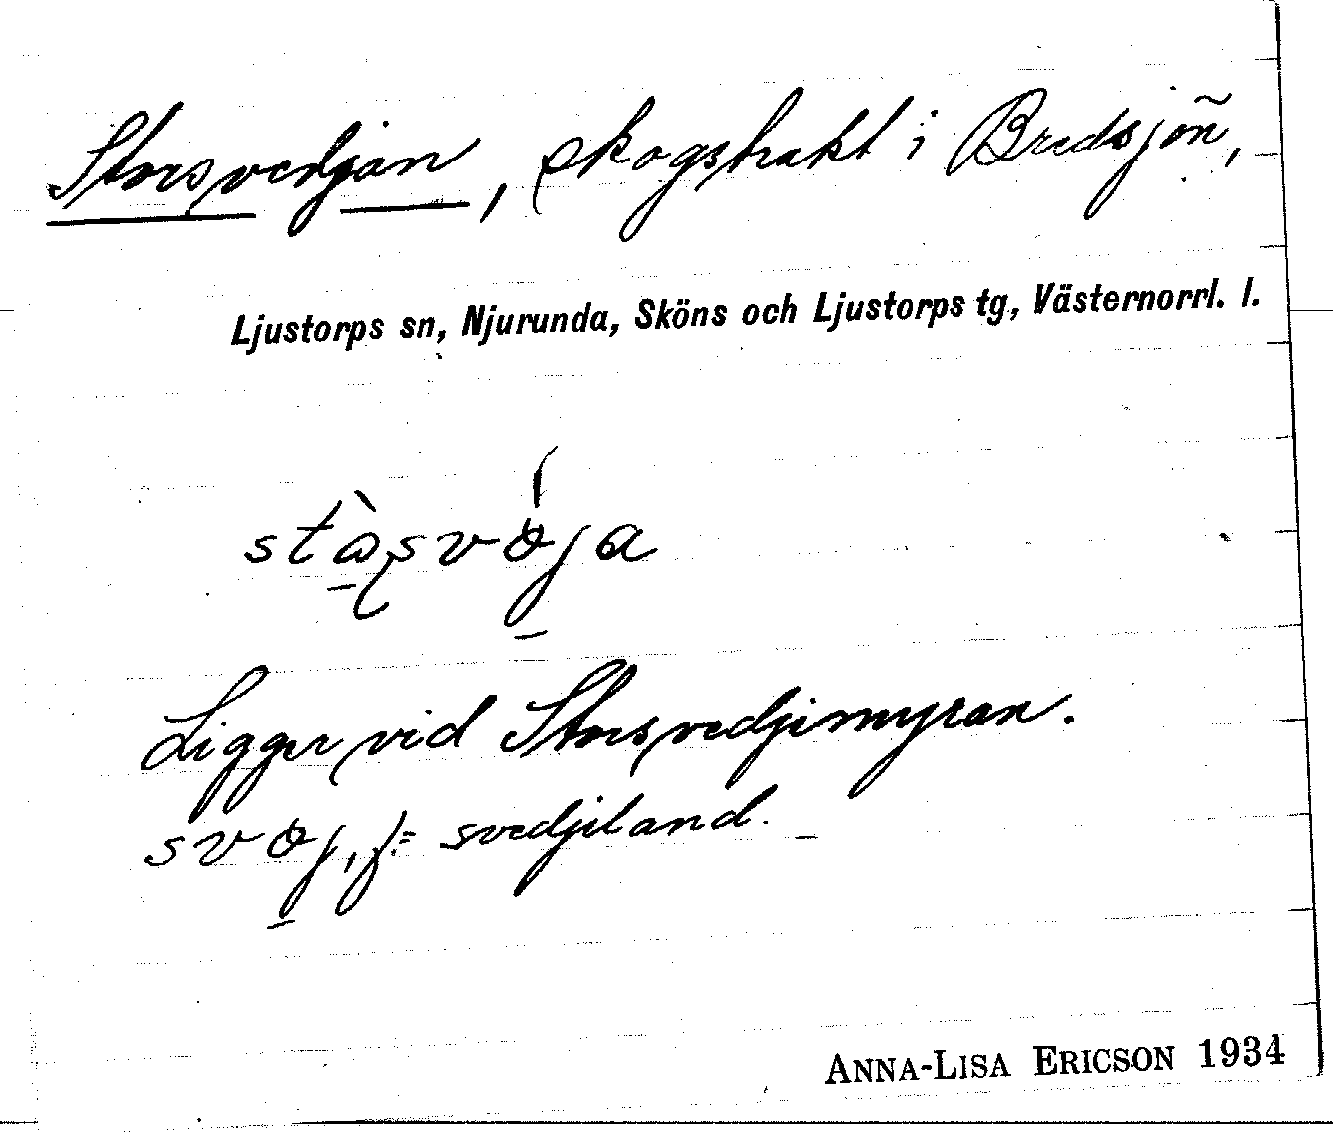 Storsvedjan, skogstrakt i Bredsjön,
Ljustorps sn, Njurunda, Sköns och Ljustorps tg, Västernorrl. l.
Ligger vid Storsvedjemyran.
svöj, f. = svedjeland.
ANNA-LISA ERICSON 1934